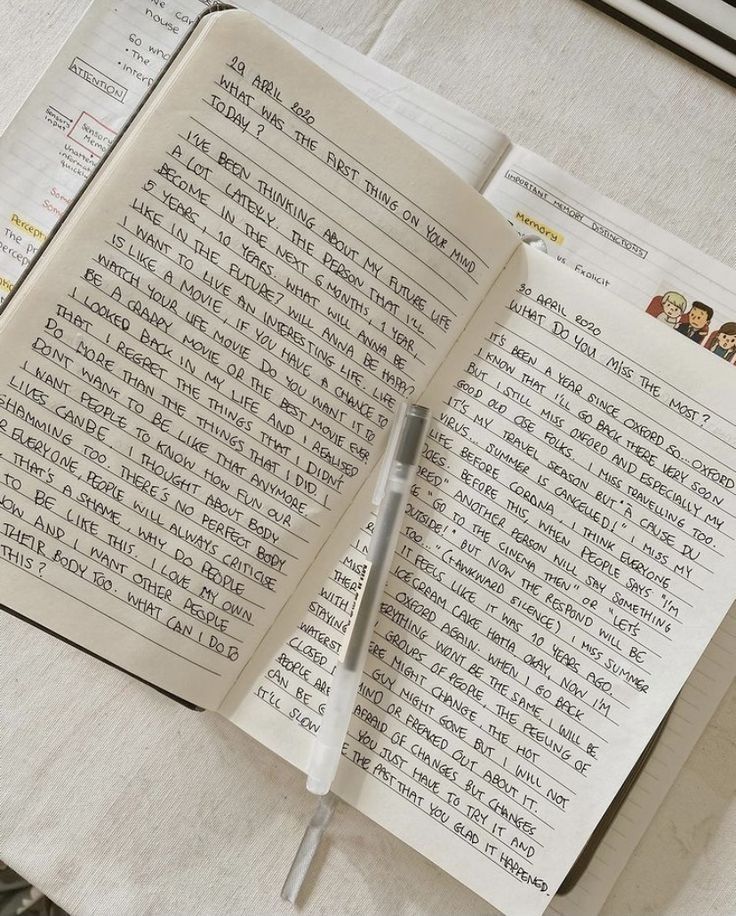 we can
house
So who
• The
• inter
ATTENTION
Sensory
input
Sensory
Memo
Unatten
informatio
quickly
Some
Som
Percept
the pr
percep
29 APRIL 2020
WHAT WAS THE FIRST THING ON YOUR MIND
TODAY?
I'VE BEEN THINKING ABOUT MY FUTURE LIFE
A LOT LATELY. THE PERSON THAT I'LL
BECOME IN THE NEXT 6 MONTHS, 1 YEAR,
5 YEARS, 10 YEARS. WHAT WILL ANNA BE
LIKE IN THE FUTURE? WILL ANNA BE HAPPY?
I WANT TO LIVE AN INTERESTING LIFE. LIFE
IS LIKE A MOVIE, IF YOU HAVE A CHANCE TO
WATCH YOUR LIFE MOVIE DO YOU WANT IT TO
BE A CRAPPY MOVIE OR THE BEST MOVIE EVER
I LOOKED BACK IN MY LIFE AND I REALISED
THAT I REGRET THE THINGS THAT I DIDN'T
DO MORE THAN THE THINGS THAT I DID. I
DONT WANT TO BE LIKE THAT ANYMORE.
I WANT PEOPLE TO KNOW HOW FUN OUR
LIVES CAN BE. I THOUGHT ABOUT BODY
SHAMMING TOO. THERE'S NO PERFECT BODY
R EVERYONE, PEOPLE WILL ALWAYS CRITICISE
THAT'S A SHAME. WHY DO PEOPLE
TO BE LIKE THIS. I LOVE MY OWN
OW AND I WANT OTHER PEOPLE
THEIR BODY TOO. WHAT CAN I DO TO
THIS?
IMPORTANT MEMORY DISTINCTIONS
Memory
vs. Explicit
30 APRIL 2020
WHAT DO YOU MISS THE MOST?
IT'S BEEN A YEAR SINCE OXFORD SO... OXFORD
I KNOW THAT I'LL GO BACK THERE VERY SOON
BUT I STILL MISS OXFORD AND ESPECIALLY MY
GOOD OLD OSE FOLKS. I MISS TRAVELLING TOO.
IT'S MY TRAVEL SEASON BUT "A CAUSE DU
VIRUS... SUMMER IS CANCELLED!" I MISS MY
LIFE BEFORE CORONA, I THINK EVERYONE
DOES. BEFORE THIS, WHEN PEOPLE SAYS "I'M
ORED" ANOTHER PERSON WILL SAY SOMETHING
E "GO TO THE CINEMA THEN" OR "LET'S
OUTSIDE!" BUT NOW THE RESPOND WILL BE
TOO..." (*AWKWARD SILENCE) I MISS SUMMER
IT FEELS LIKE IT WAS 10 YEARS AGO.
MISS ICECREAM CAKE HAHA OKAY, NOW I'M
THER OXFORD AGAIN. WHEN I GO BACK
WITH ERYTHING WONT BE THE SAME. I WILL BE
STAYING GROUPS OF PEOPLE, THE FEELING OF
WATERST ERE MIGHT CHANGE. THE HOT
CLOSED GUY MIGHT GONE BUT I WILL NOT
PEOPLE ARE MIND OR FREAKED OUT ABOUT IT.
CAN BE AFRAID OF CHANGES BUT CHANGES
IT'LL SLOW YOU JUST HAVE TO TRY IT AND
E THE PAST THAT YOU GLAD IT HAPPENED.